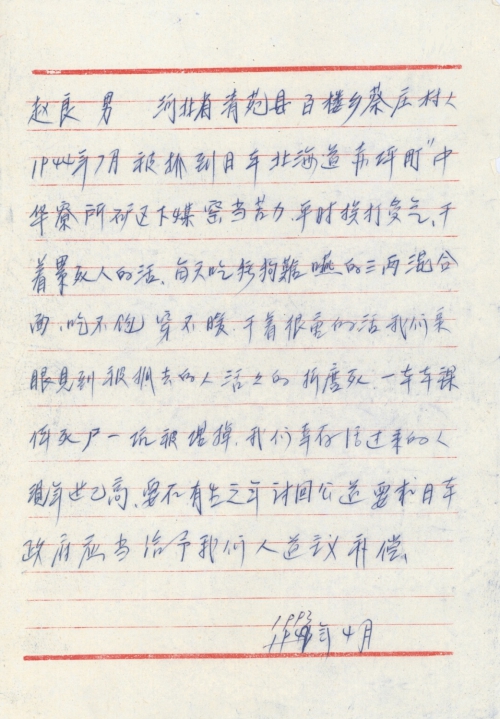 赵良 男 河北省清苑县百楼乡蔡庄村人
1944年7月被抓到日本北海道赤坪町"中
华寮所矿区下煤窑当苦力、平时挨打受气、干
着累死人的活、每天吃猪狗难咽的三两混合
面、吃不饱穿不暖、干着很重的活我们亲
眼见到被抓去的人活々的折磨死一车车裸
体死尸一坑被埋掉、我们幸存活过来的人
现年世已高、要在有生之年讨回公道要求日本
政府应当给予我们人道主义补偿、
1993年4月